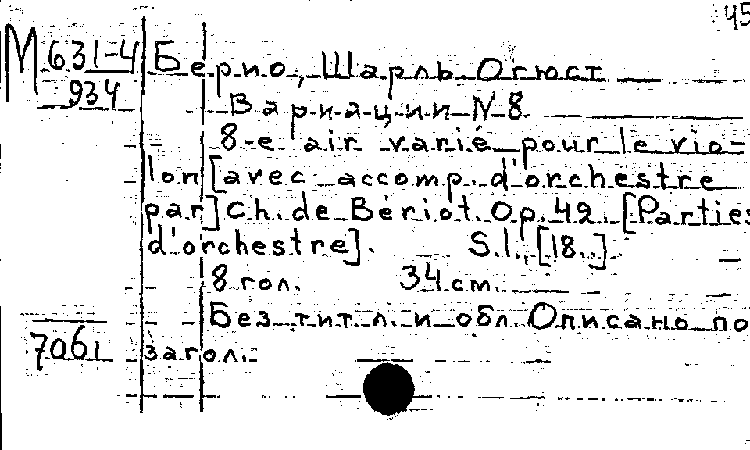 45
М 631-4 Берио, Шарль Огюст
934
Вариации N 8
8-e air varié pour le vio-
lon [avec accomp. d'orchestre
par] Ch. de Bériot. Op. 42. [Parties
d'orchestre]. S.l., [18..]
8 гол. 34 см.
Без тит. л. и обл. Описано по
7061 загол.